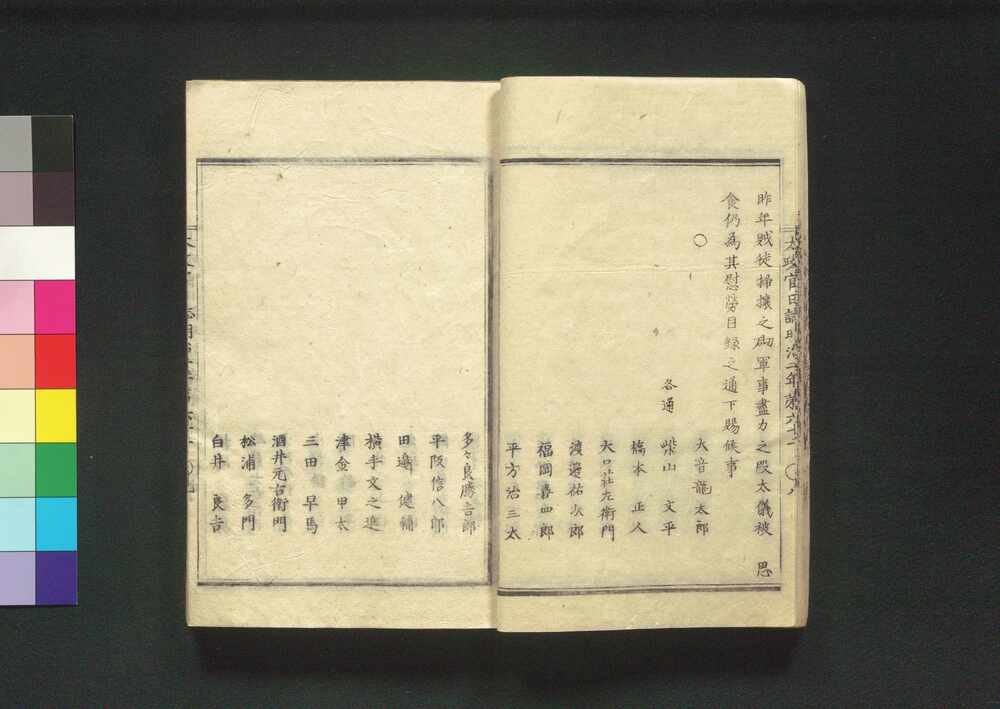 昨年賊徒掃攘之砌軍事盡力之段太儀被　思
食仍為其慰勞目録之通下賜候事
○
大音龍太郎
各通　柴山　文平
橋本　正人
大口莊左衛門
渡邊祐次郎
福岡喜四郎
平方治三太
多々良勝吉郎
平阪信八郎
田邉　健輔
横手文之進
津金　甲太
三田　早馬
酒井元右衛門
松浦　多門
白井　良吉